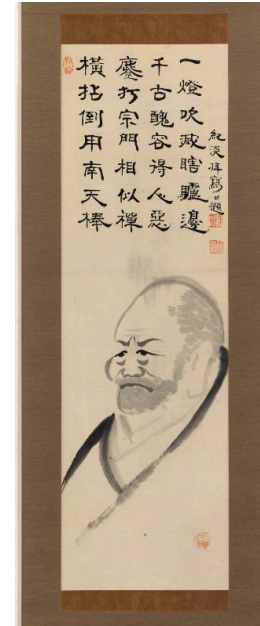 寫并題
一燈吹滅瞎驢邊
千古醜容得人惡
打宗門相似禪
橫拈倒用南天棒